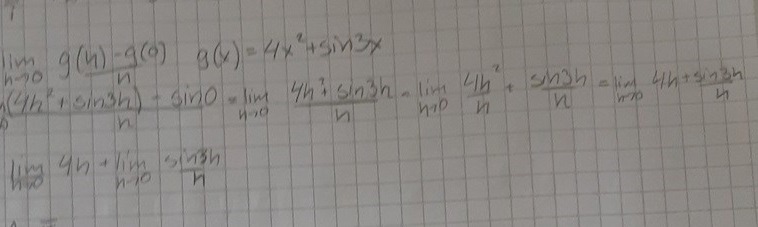 lim h→0 (g(h)-g(0))/h g(x)=4x²+sin3x
((4h²+sin3h)-sin0)/h = lim h→0 (4h²+sin3h)/h = lim h→0 4h²/h + sin3h/h = lim h→0 4h+sin3h/h
lim h→0 4h+lim h→0 sin3h/h